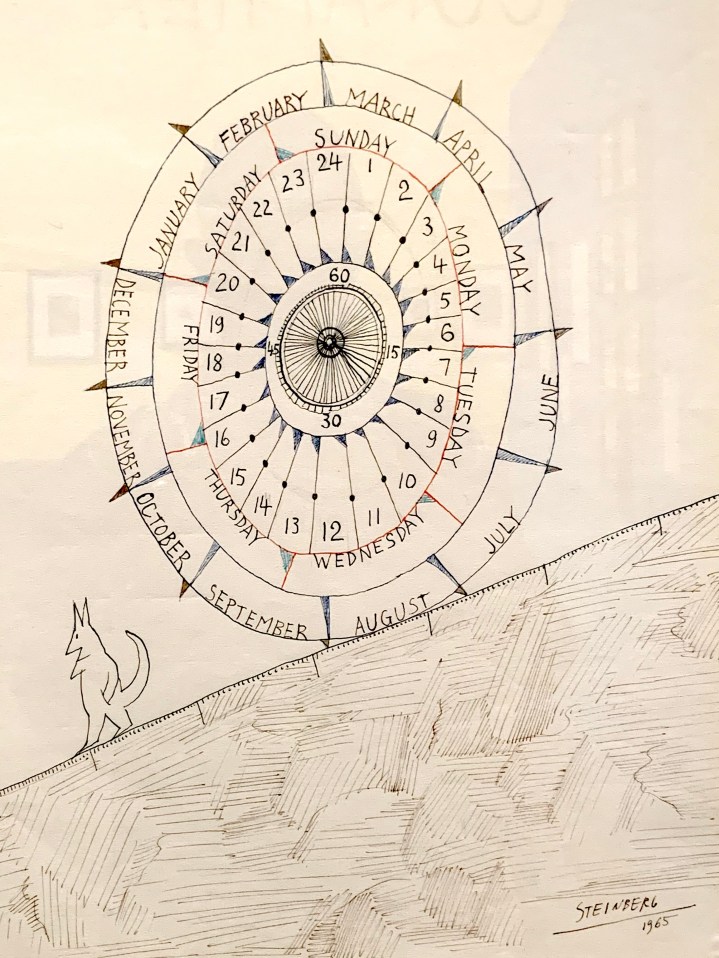 JANUARY
FEBRUARY
MARCH
APRIL
MAY
JUNE
JULY
AUGUST
SEPTEMBER
OCTOBER
NOVEMBER
DECEMBER
SUNDAY
MONDAY
TUESDAY
WEDNESDAY
THURSDAY
FRIDAY
SATURDAY
1
2
3
4
5
6
7
8
9
10
11
12
13
14
15
16
17
18
19
20
21
22
23
24
60
15
30
45
STEINBERG
1965